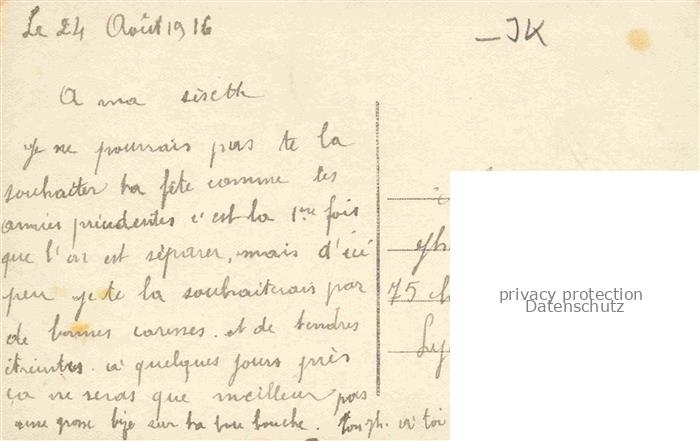 Le 24 Août 1916
JK
A ma sisette
Je ne pourrais pas te la
souhaiter ta fête comme les
années précédentes c'est la 1ère fois
que l'on est séparer, mais d'ici
peu je te la souhaiterais par
de bonnes caresses. et de tendres
étreintes. a quelques jours près
ça ne seras que meilleur pas
une grosse bije sur ta bouche. ton à toi
75
Ly
privacy protection
Datenschutz